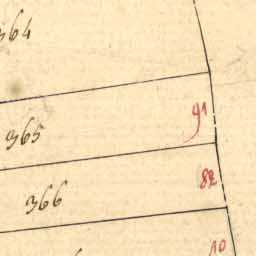 364
365
91
366
82
10